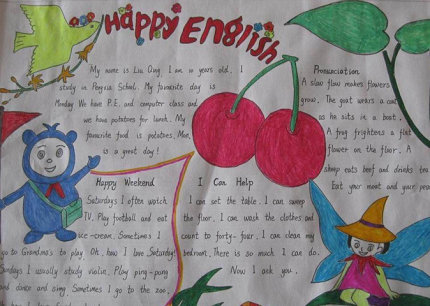 Happy English
My name is Liu Qing. I am 10 years old. I
study in Penguin School. My favourite day is
Monday. We have P.E. and computer class and
we have potatoes for lunch. My
favourite food is potatoes. Mon.
is a great day!
Pronunciation
A slow flow makes flowers
grow. The goat wears a coat
as he sits in a boat.
A frog frightens a flat
flower on the floor. A
sheep eats beef and drinks tea.
Eat your meat and your peas
Happy Weekend
Saturdays I often watch
TV. Play football and eat
ice-cream. Sometimes I
go to Grandmas to play. Oh, how I love Saturdays!
Sundays I usually study violin. Play ping-pong
and dance and sing. Sometimes I go to the zoo.
I Can Help
I can set the table. I can sweep
the floor. I can wash the clothes and
count to forty-four. I can clean my
bedroom. There is so much I can do.
Now I ask you.